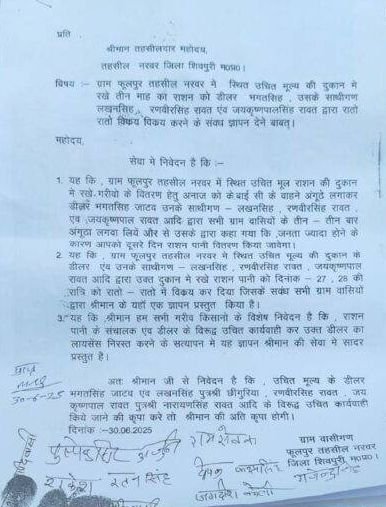 प्रति
श्रीमान तहसीलदार महोदय,
तहसील नरवर जिला शिवपुरी म०प्र०।
विषय :– ग्राम फूलपुर तहसील नरवर मे स्थित उचित मूल्य की दुकान मे
रखे तीन माह का राशन को डीलर भगतसिह , उसके साथीगण
लखनसिह, रणवीरसिह रावत एंव जयकृष्णपालसिह रावत द्वारा रातो
रातो विक्रय विकय करने के संवध ज्ञापन देने बाबत्।
महोदय,
सेवा मे निवेदन है कि :–
1. यह कि , ग्राम फूलपुर तहसील नरवर में स्थित उचित मूल राशन की दुकान
मे रखे गरीवो के वितरण हेतु अनाज को के बाई सी के वाहने अंगूठे लगाकर
डीलर भगतसिह जाटव उनके साथीगण – लखनसिह , रणवीरसिह रावत ,
एंव जयकृष्णपाल रावत आदि द्वारा सभी ग्राम वासियों के तीन – तीन बार
अंगूठा लगवा लिये और से उसके द्वारा कहा गया कि ,जनता ज्यादा होने के
कारण आपको दूसरे दिन राशन पानी वितरण किया जावेगा।
2. यह कि , ग्राम फूलपुर तहसील नरवर मे स्थित उचित मूल्य की दुकान के
डीलर एंव उनके साथीगण – लखनसिह , रणवीरसिह रावत , जयकृष्णपाल
रावत आदि द्वारा उक्त दुकान मे रखे राशन पानी को दिनांक – 27 , 28 की
रात्रि को रातो – रातो मे विकय कर दिया जिसके संवध सभी ग्राम वासियों
द्वारा श्रीमान के यहाँ एक ज्ञापन प्रस्तुत किया है।
3. यह कि ,श्रीमान हम सभी गरीव किसानो के विशेष निवेदन है कि , राशन
पानी के संचालक एंव डीलर के विरूद्व उचित कार्यवाही कर उक्त डीलर का
लायसेंस निरस्त करने के सत्यापन मे यह ज्ञापन श्रीमान की सेवा मे सादर
प्रस्तुत है।
30-6-25
अतः श्रीमान जी से निवेदन है कि , उचित मूल्य के डीलर
भगतसिह जाटव एंव लखनसिह पुत्रश्री छीगुरिया , रणवीरसिह रावत , जय
कृष्णपाल रावत पुत्रश्री नारायणसिह रावत आदि के विरूद्व उचित कार्यवाही
किये जाने की कृपा करे तो श्रीमान की अति कृपा होगी।
दिनांक :–30.06.2025
ग्राम वासीगण
फूलपुर तहसील नरवर
जिला शिवपुरी म०प्र०।
रतन सिंह